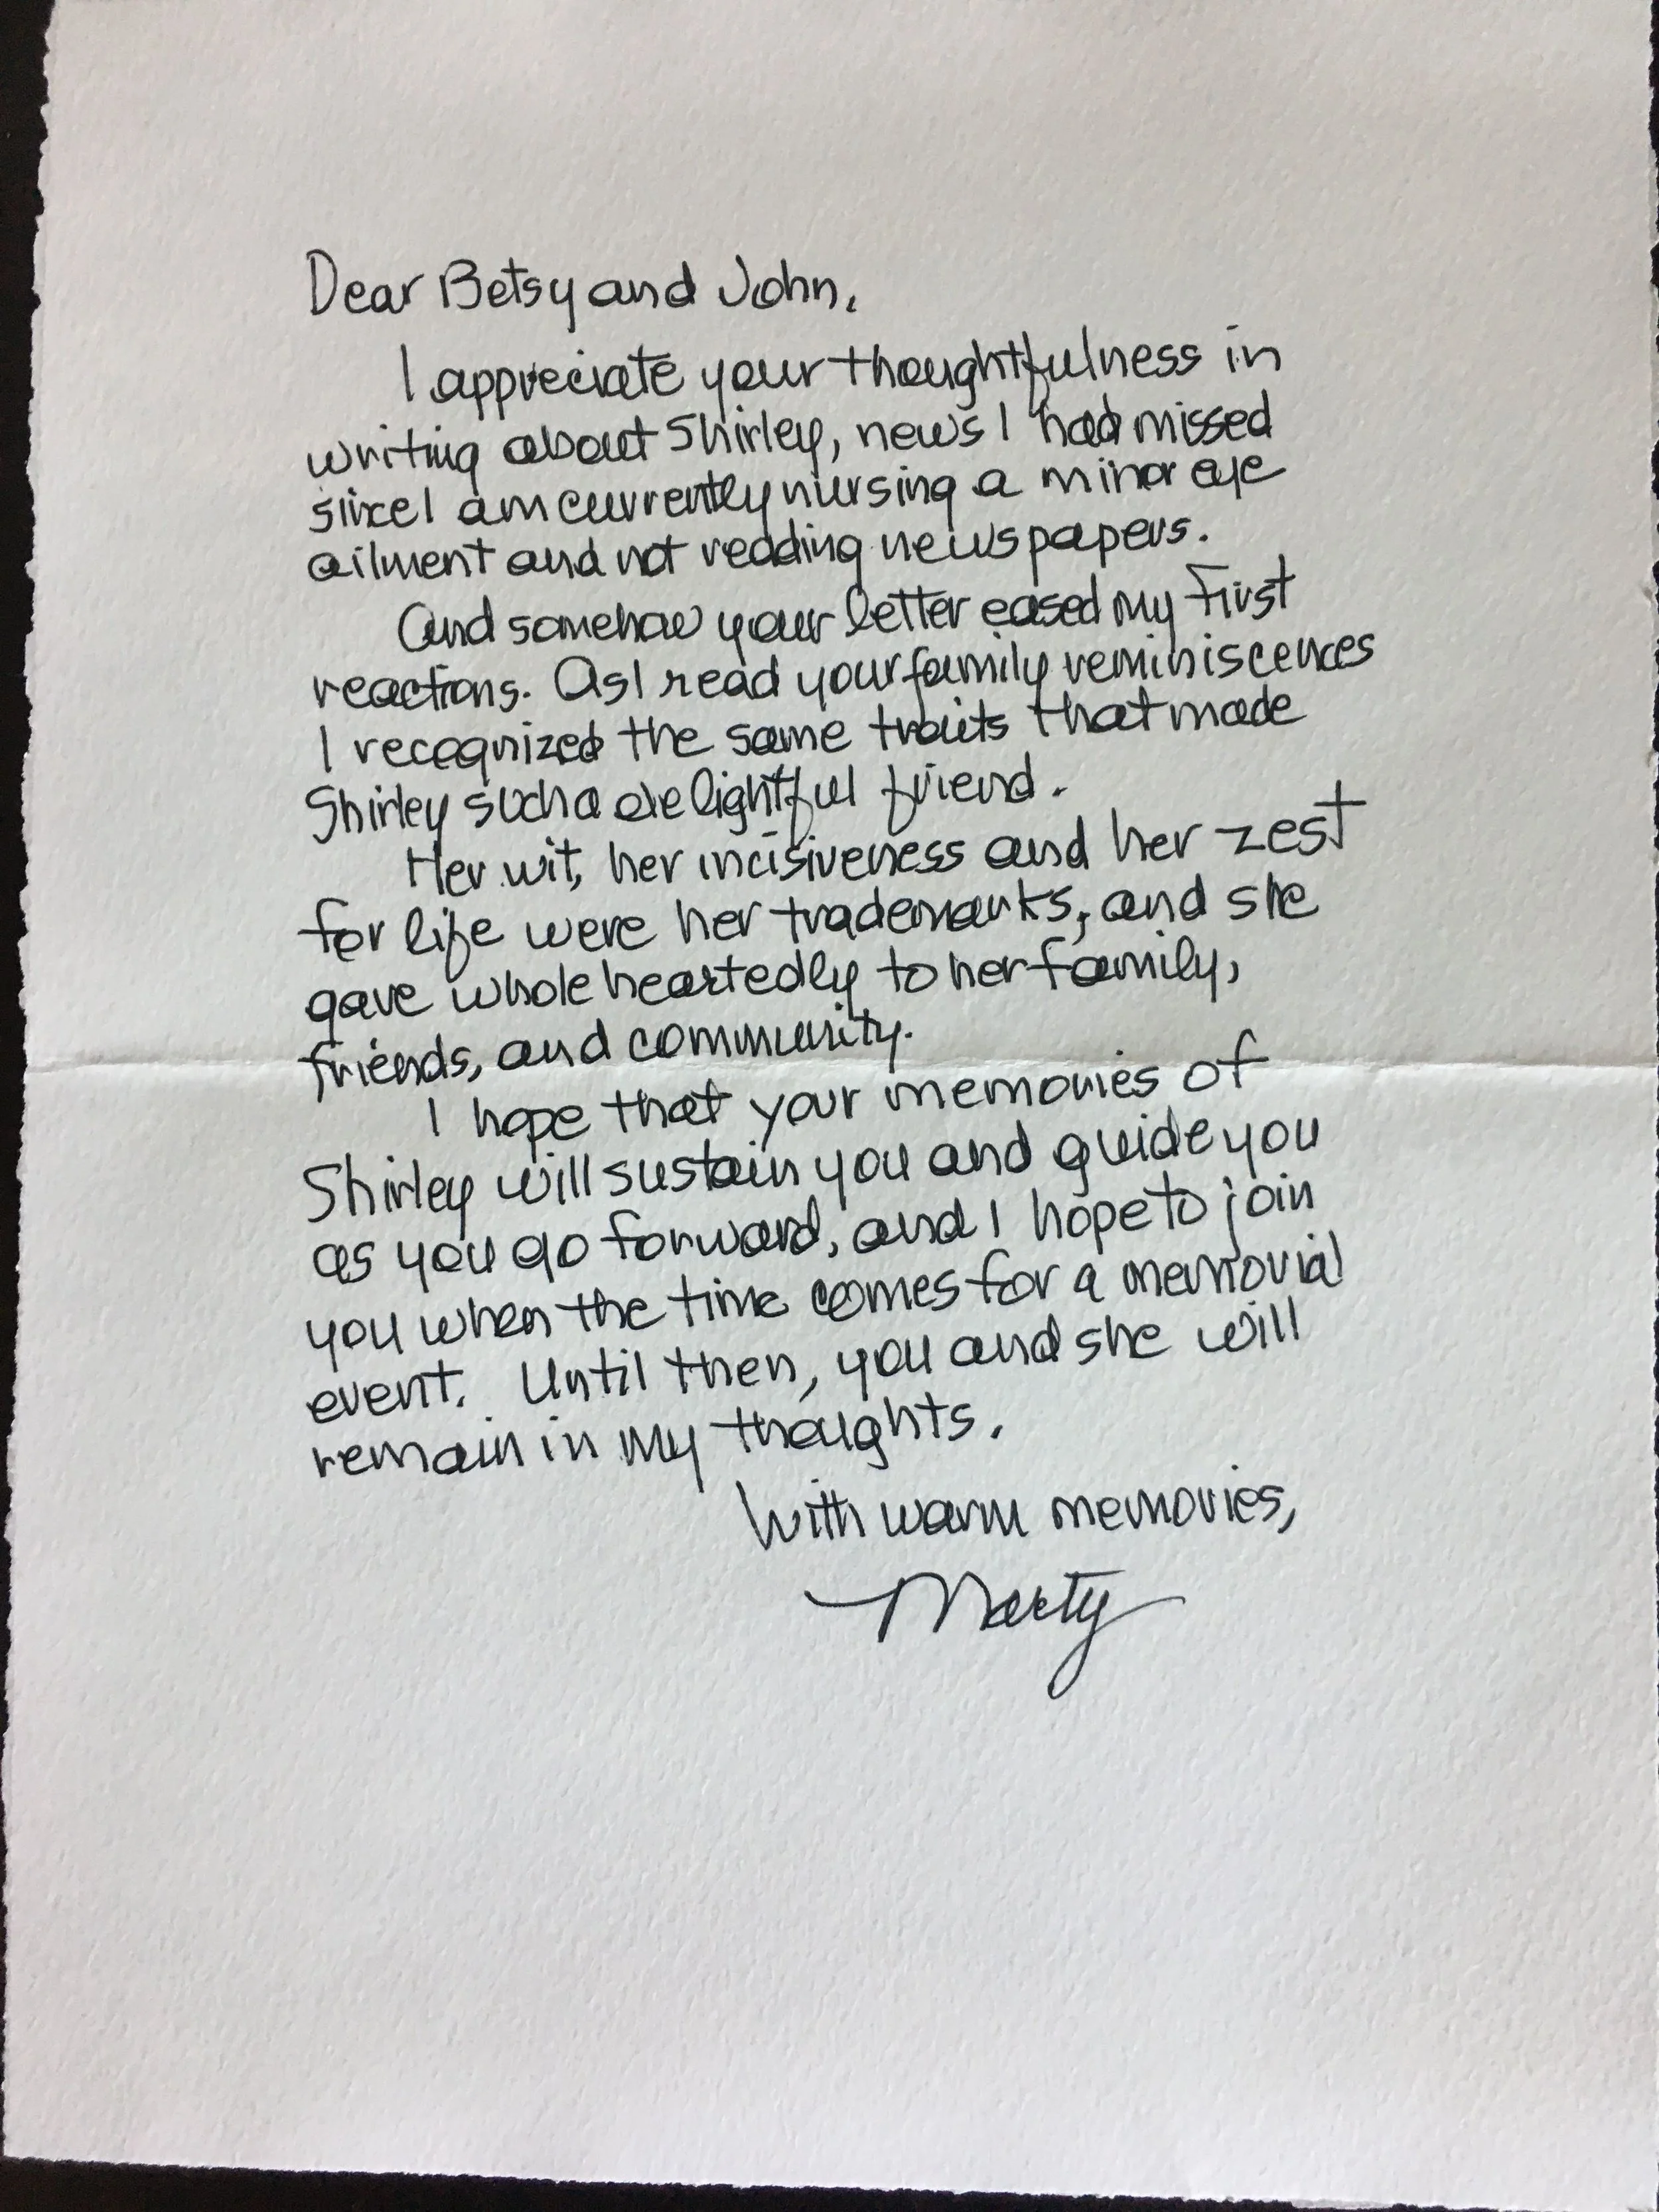 Dear Betsy and John,
I appreciate your thoughtfulness in
writing about Shirley, news I had missed
since I am currently nursing a minor eye
ailment and not reading newspapers.
And somehow your letter eased my first
reactions. As I read your family reminiscences
I recognized the same traits that made
Shirley such a delightful friend.
Her wit, her incisiveness and her zest
for life were her trademarks, and she
gave whole heartedly to her family,
friends, and community.
I hope that your memories of
Shirley will sustain you and guide you
as you go forward, and I hope to join
you when the time comes for a memorial
event. Until then, you and she will
remain in my thoughts.
With warm memories,
Marty